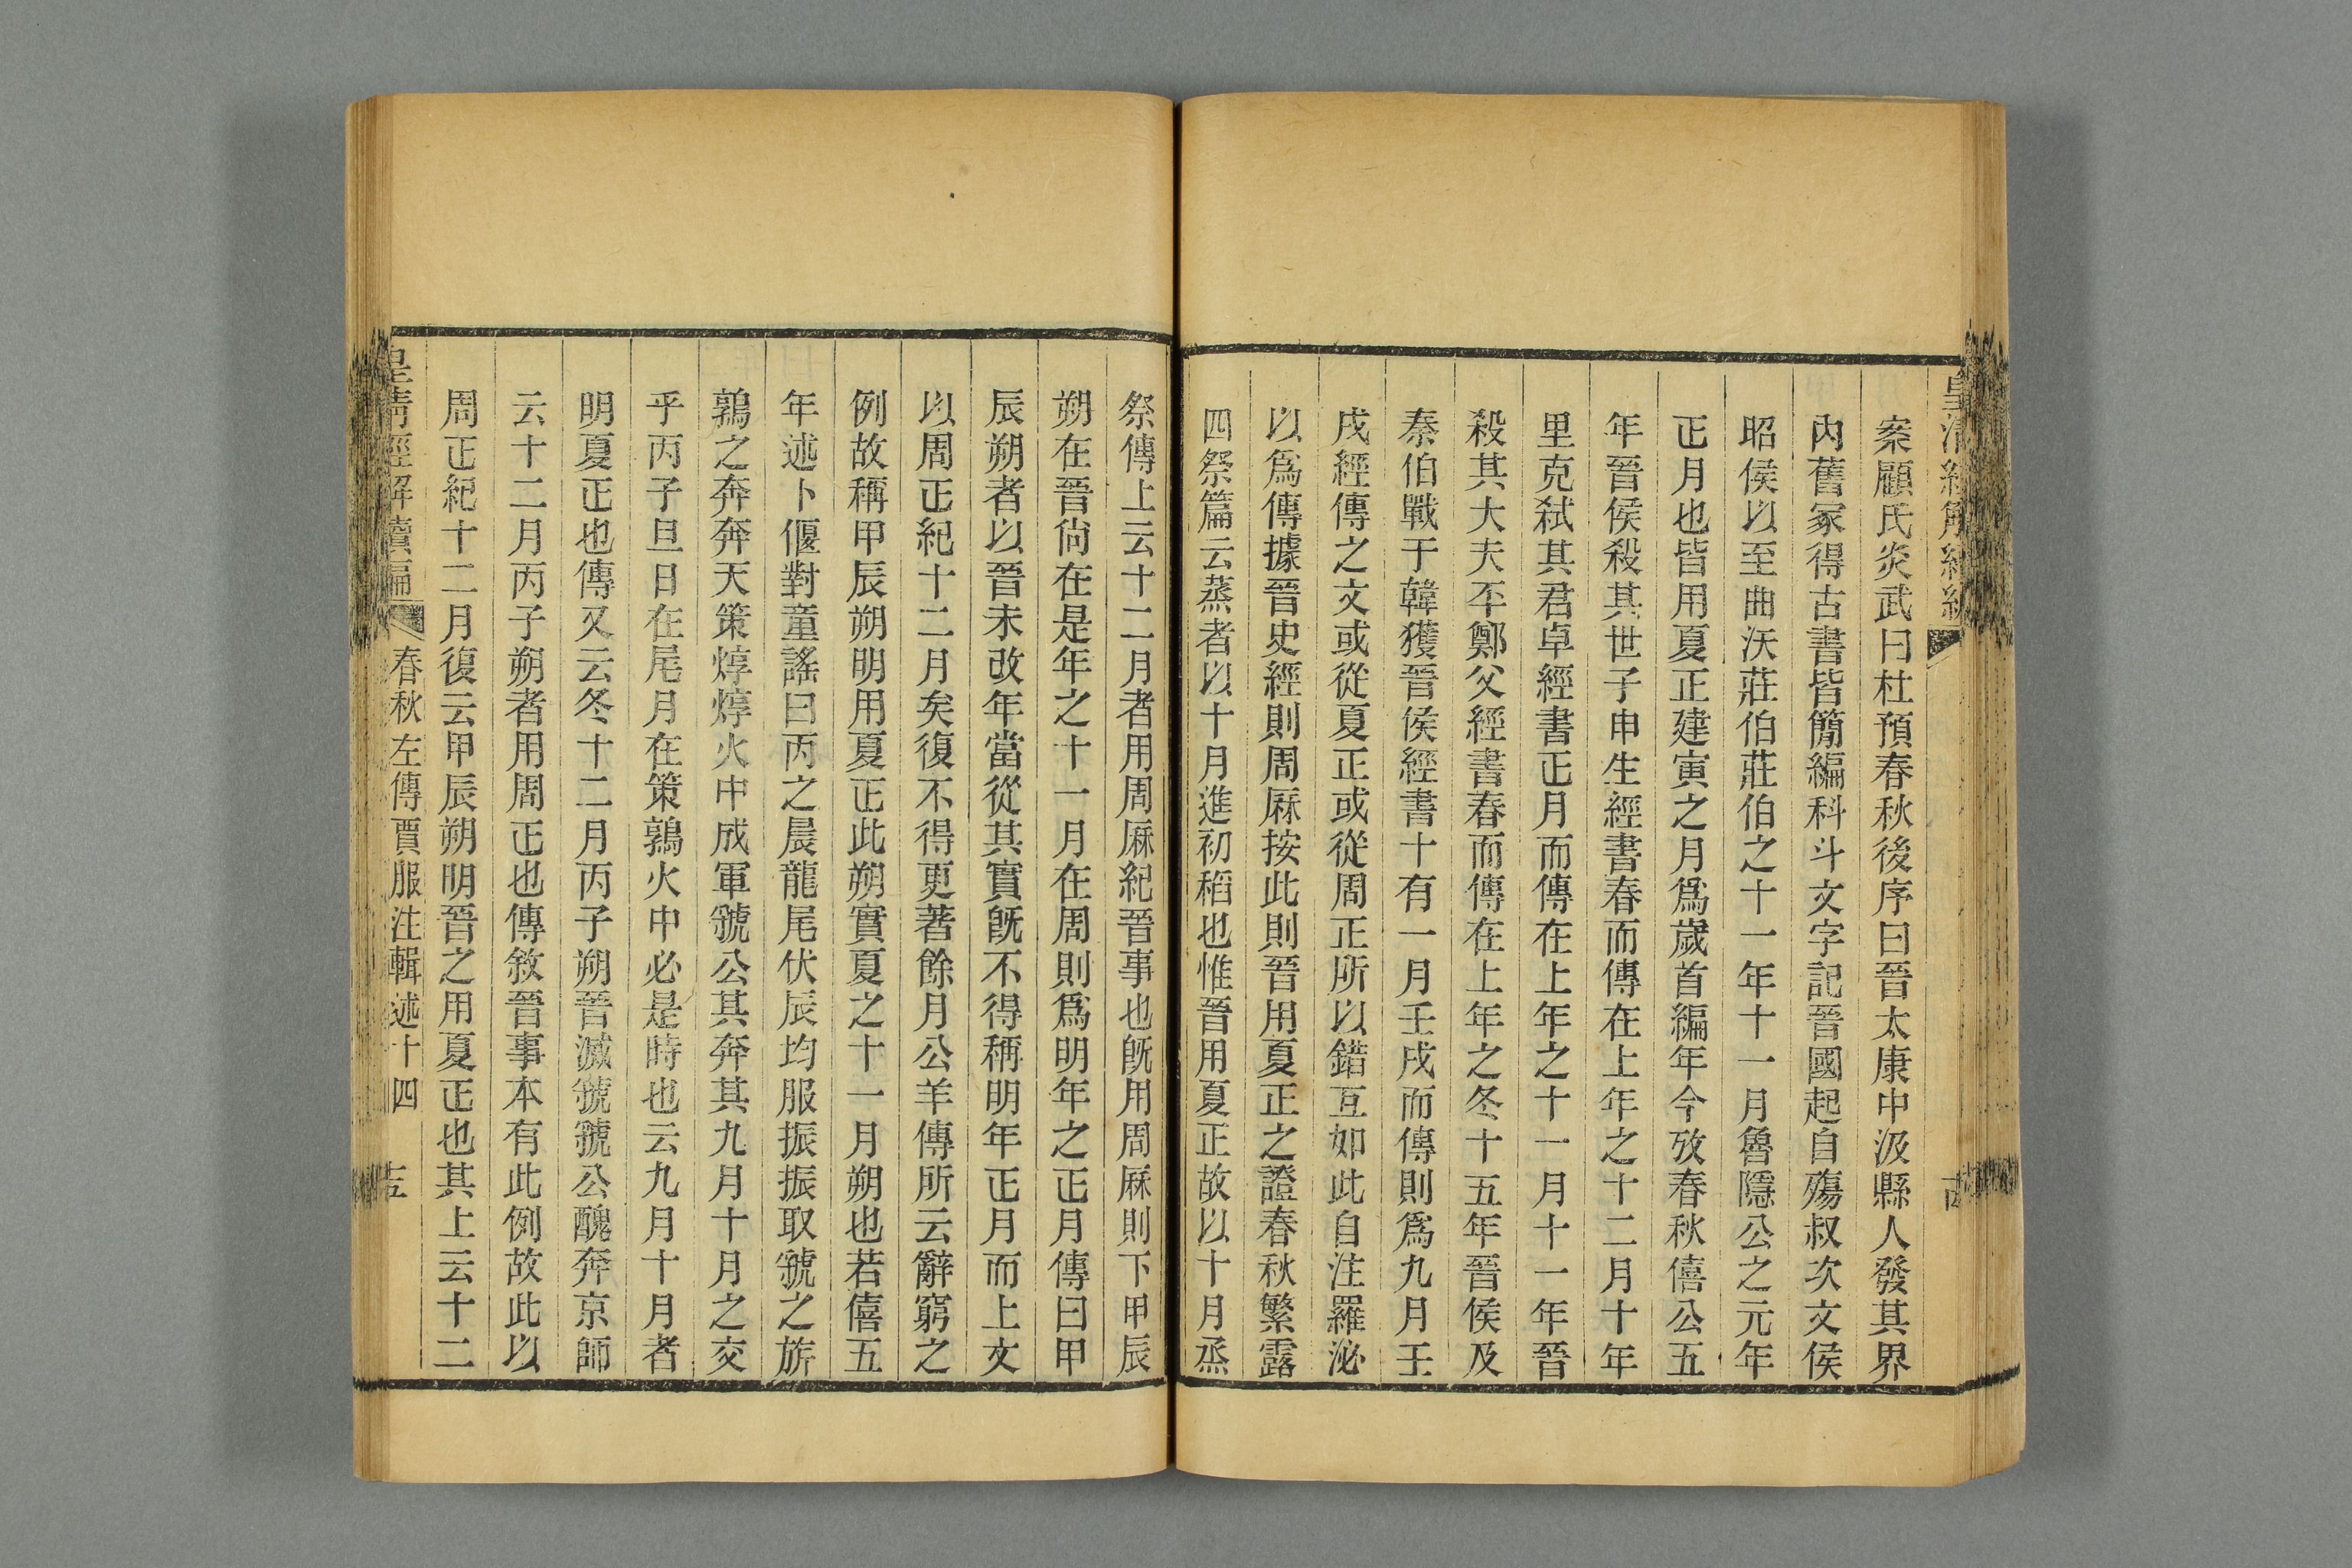 案顧氏炎武曰杜預春秋後序曰晉太康中汲縣人發其界
內舊冢得古書皆簡編科斗文字記晉國起自殤叔次文侯
昭侯以至曲沃莊伯莊伯之十一年十一月魯隱公之元年
正月也皆用夏正建寅之月爲歲首編年今攷春秋僖公五
年晉侯殺其世子申生經書春而傳在上年之十二月十年
里克弑其君卓經書正月而傳在上年之十一月十一年晉
殺其大夫丕鄭父經書春而傳在上年之冬十五年晉侯及
秦伯戰于韓獲晉侯經書十有一月壬戌而傳則爲九月壬
戌經傳之文或從夏正或從周正所以錯互如此自注羅泌
以爲傳據晉史經則周厤按此則晉用夏正之證春秋繁露
四祭篇云蒸者以十月進初稻也惟晉用夏正故以十月烝
祭傳上云十二月者用周厤紀晉事也旣用周厤則下甲辰
朔在晉尙在是年之十一月在周則爲明年之正月傳曰甲
辰朔者以晉未改年當從其實旣不得稱明年正月而上文
以周正紀十二月矣復不得更著餘月公羊傳所云辭窮之
例故稱甲辰朔明用夏正此朔實夏之十一月朔也若僖五
年述卜偃對童謠曰丙之晨龍尾伏辰均服振振取虢之旂
鶉之奔奔天策焞焞火中成軍虢公其奔其九月十月之交
乎丙子旦日在尾月在策鶉火中必是時也云九月十月者
明夏正也傳又云冬十二月丙子朔晉滅虢虢公醜奔京師
云十二月丙子朔者用周正也傳敘晉事本有此例故此以
周正紀十二月復云甲辰朔明晉之用夏正也其上云十二
皇清經解續編 春秋左傳賈服注輯述十四